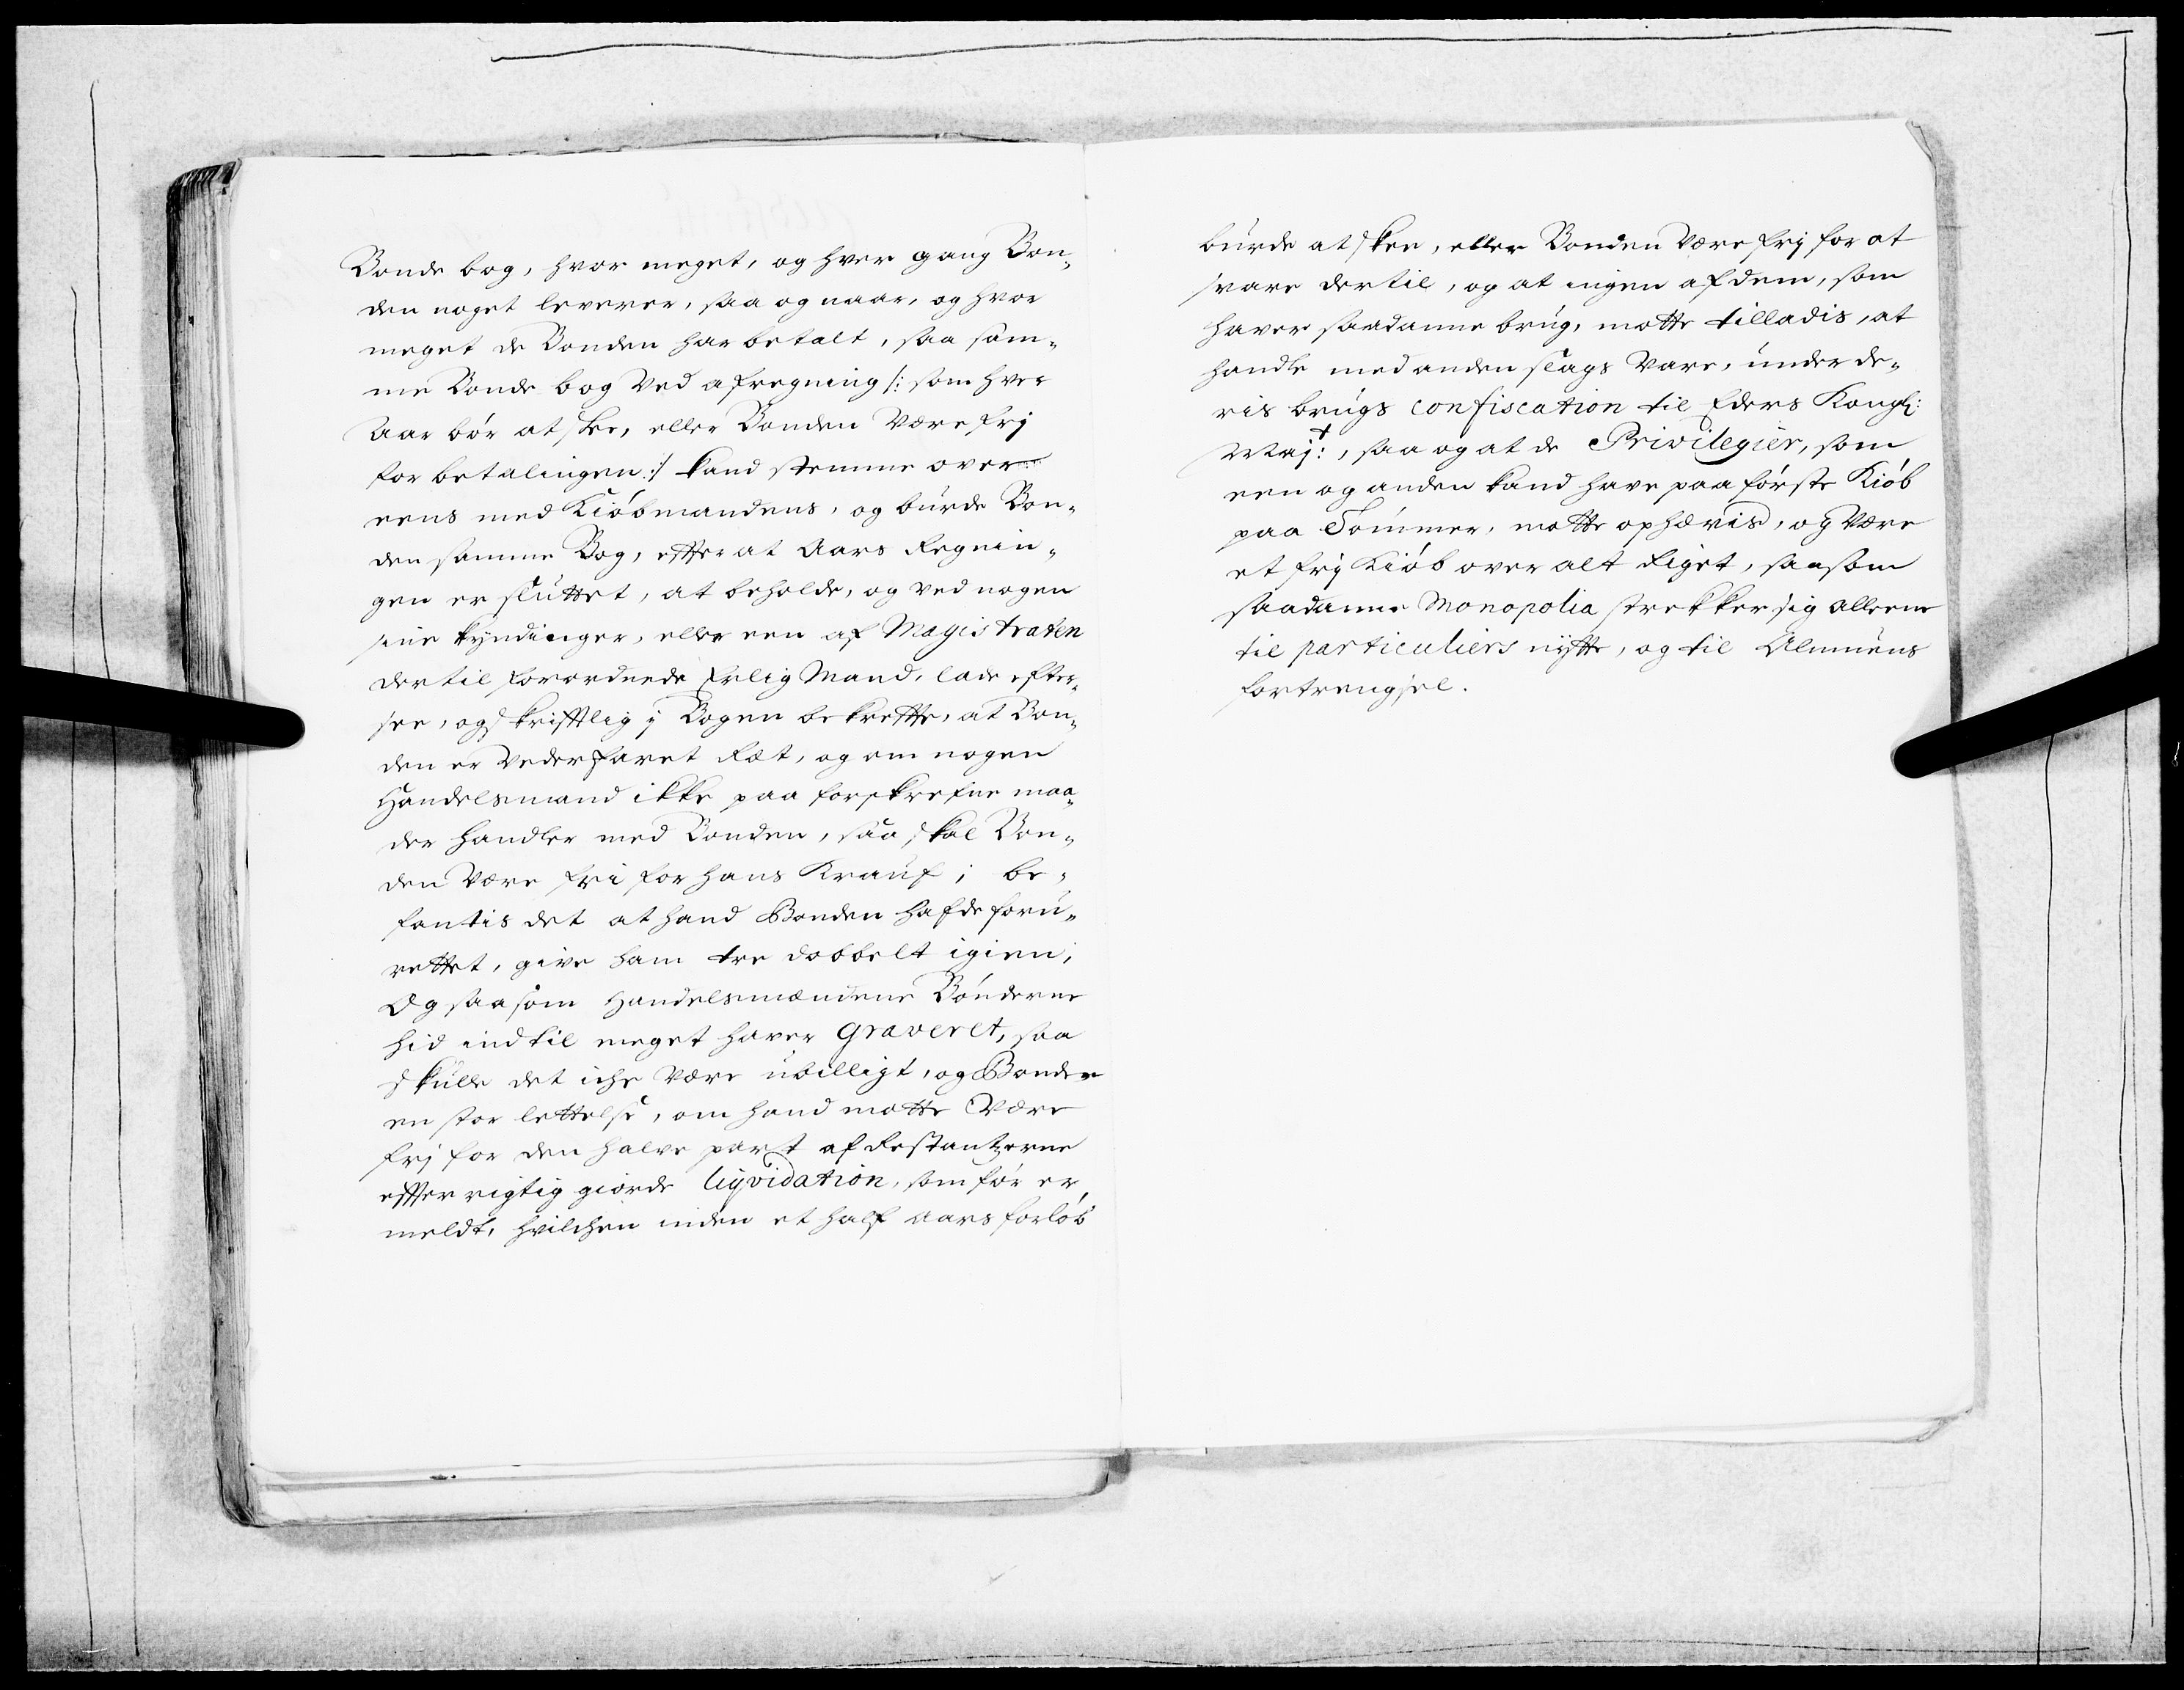 Bonde bog, hvor meget, og hver gang Bon-
den noget leverer, saa og naar, og hvor
meget de Bonden har betalt, saa sam-
me Bonde bog Ved afregning /: som hver
Aar bör at skee, eller Bonden Være frj
for betalingen :/ kand stemme over
eens med Kiöbmandens, og burde Bon-
den samme Bog, effter at Aars Regnin-
gen er sluttet, at beholde, og ved nogen
sine kyndinger, eller een af Magistraten
dertil forordnede Erlig Mand, lade efter-
see, og skrifftlig j Bogen bekreffte, at Bon-
den er Vederfaret Ræt, og om nogen
Handelsmand ikke paa forskrefne maa-
der handler med Bonden, saa skal Bon-
den Være fri for hans Krauf; be-
fantis det at hand Bonden hafde foru-
rettet, give ham tre dobbelt igien;
Og saasom Handelsmændene Bönderne
hid indtil meget haver graveret, saa
skulle det iche Være ubilligt, og Bonden
en stor lettelse, om hand motte Være
frj for den halve part af Restantzerne
effter rigtig giorde liqvidation, som för er
meldt, hvilchen inden et half Aars forlöb
burde at skee, eller Bonden Være frj for at
svare dertil, og at ingen af dem, som
haver saadanne brug, motte tilladis, at
handle med anden slags Vare, under de-
ris brugs confiscation til Eders Kongl:
Maj:t, saa og at de Privilegier, som
een og anden kand have paa förste Kiöb
paa Tömmer, motte ophævis, og Være
et frj Kiöb over alt Riget, saasom
saadanne Monopolia strekker sig alleene
til particuliers nytte, og til Almuens
fortrengsel.